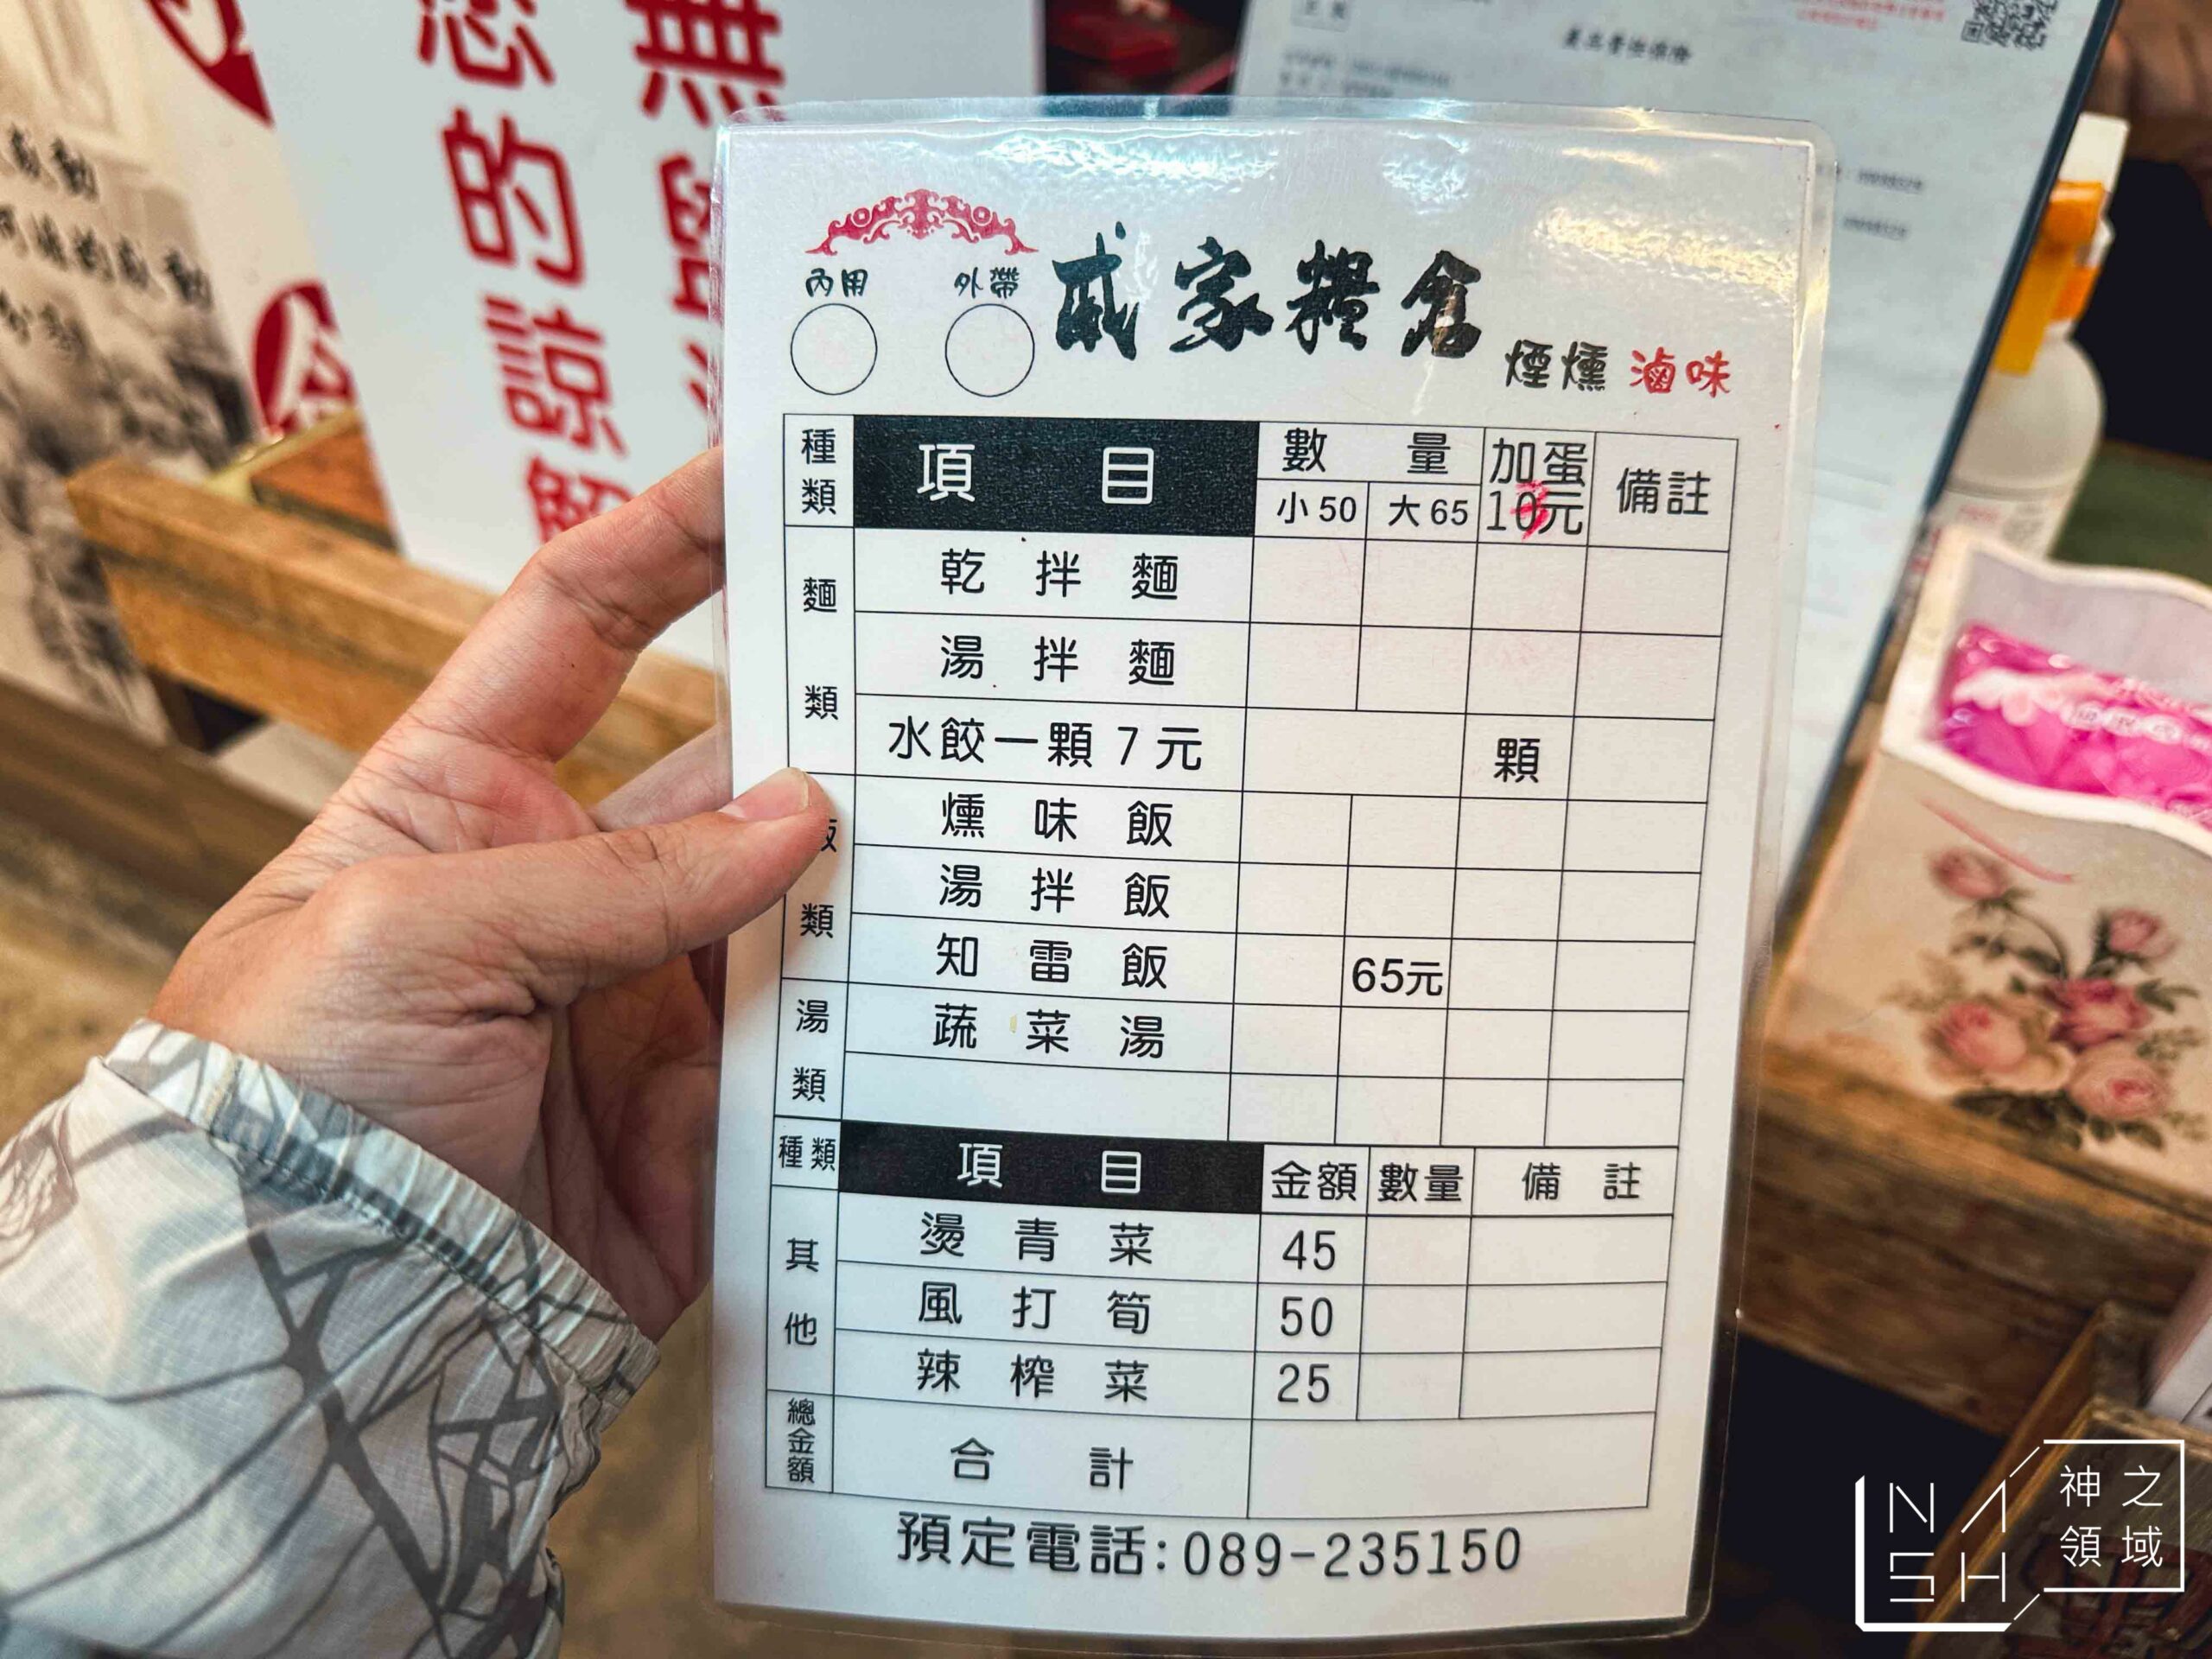 您的諒解
無
內用 外帶 戚家糧倉 煙燻 滷味
種類 項目 數量 加蛋 10元 備註
小50 大65
麵類
乾拌麵
湯拌麵
水餃一顆7元 顆
類
燻味飯
湯拌飯
知雷飯 65元
湯類
蔬菜湯
種類 項目 金額 數量 備註
其他
燙青菜 45
風打筍 50
辣榨菜 25
總金額 合計
預定電話:089-235150
NASH 神之領域